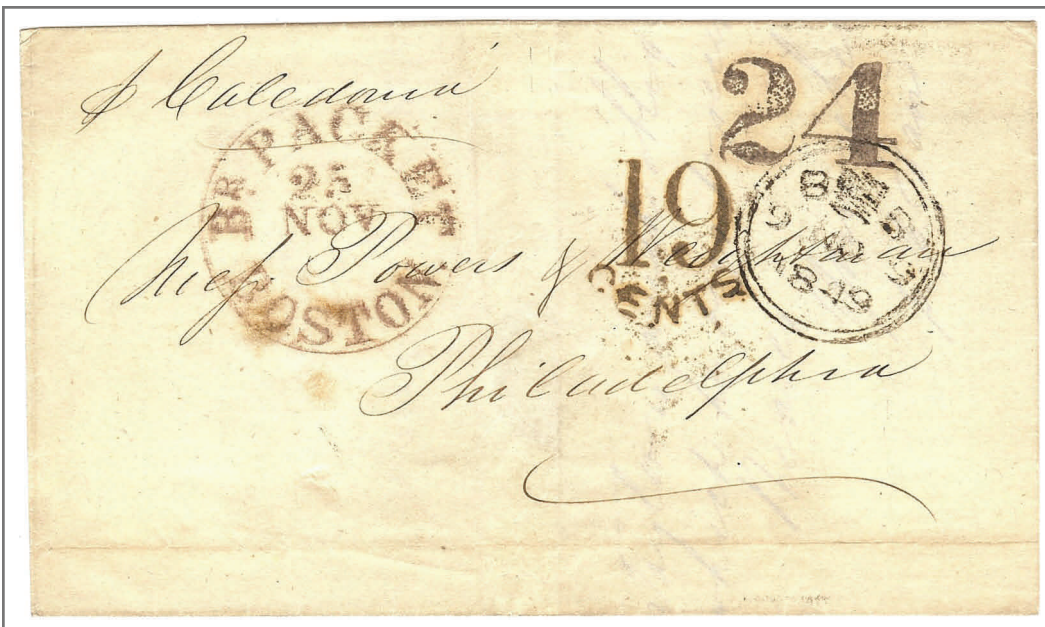 p Caledonia
24
BR. PACKET
25
NOV
BOSTON
19
CENTS.
1849
Messrs. Powers & Weightman
Philadelphia